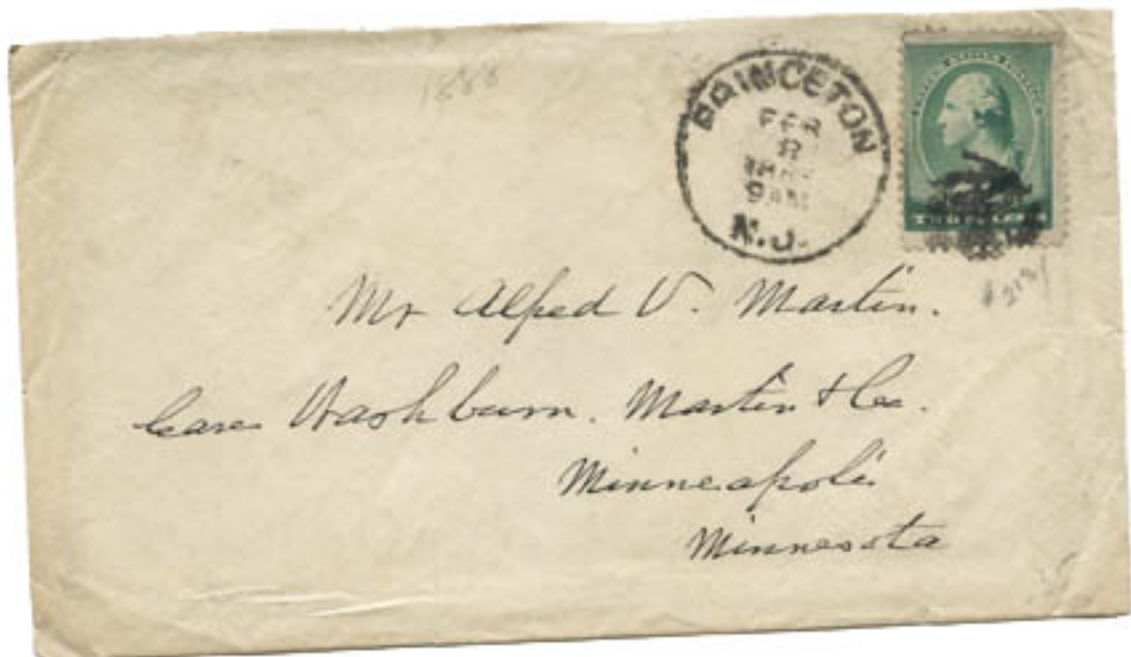 1888
PRINCETON
FEB
8
9AM
N.J.
Mr Alfred V. Martin.
Care Washburn. Martin & Co.
Minneapolis
Minnesota